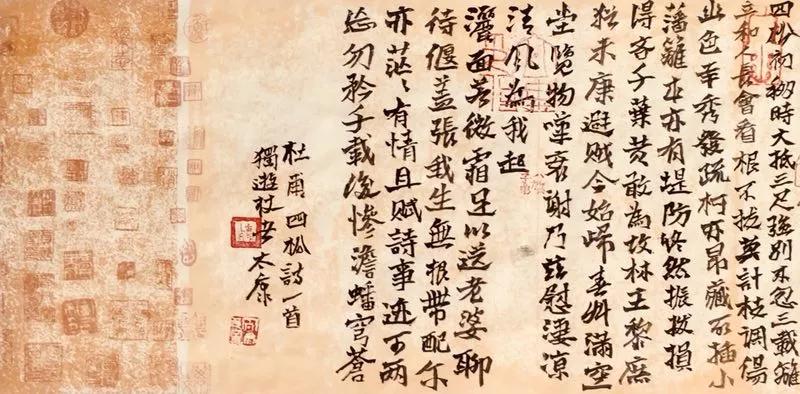 四松初移時大抵三尺強別来忽三載離
立如人長會看根不拔莫計枝凋傷
幽色幸秀發疏柯亦昂藏所插小
藩籬本亦有堤防終然振撥損
得吝千葉黄敢為故林主黎庶
猶未康避賊今始歸春艸滿空
堂覽物嘆衰謝及茲慰淒涼
清風為我起
灑面若微霜足以送老姿聊
待偃蓋張我生無根帶配尔
亦茫々有情且賦詩事迹可兩
忘勿矜千載後慘澹蟠穹蒼
杜甫四松詩一首
獨遊杖書太康